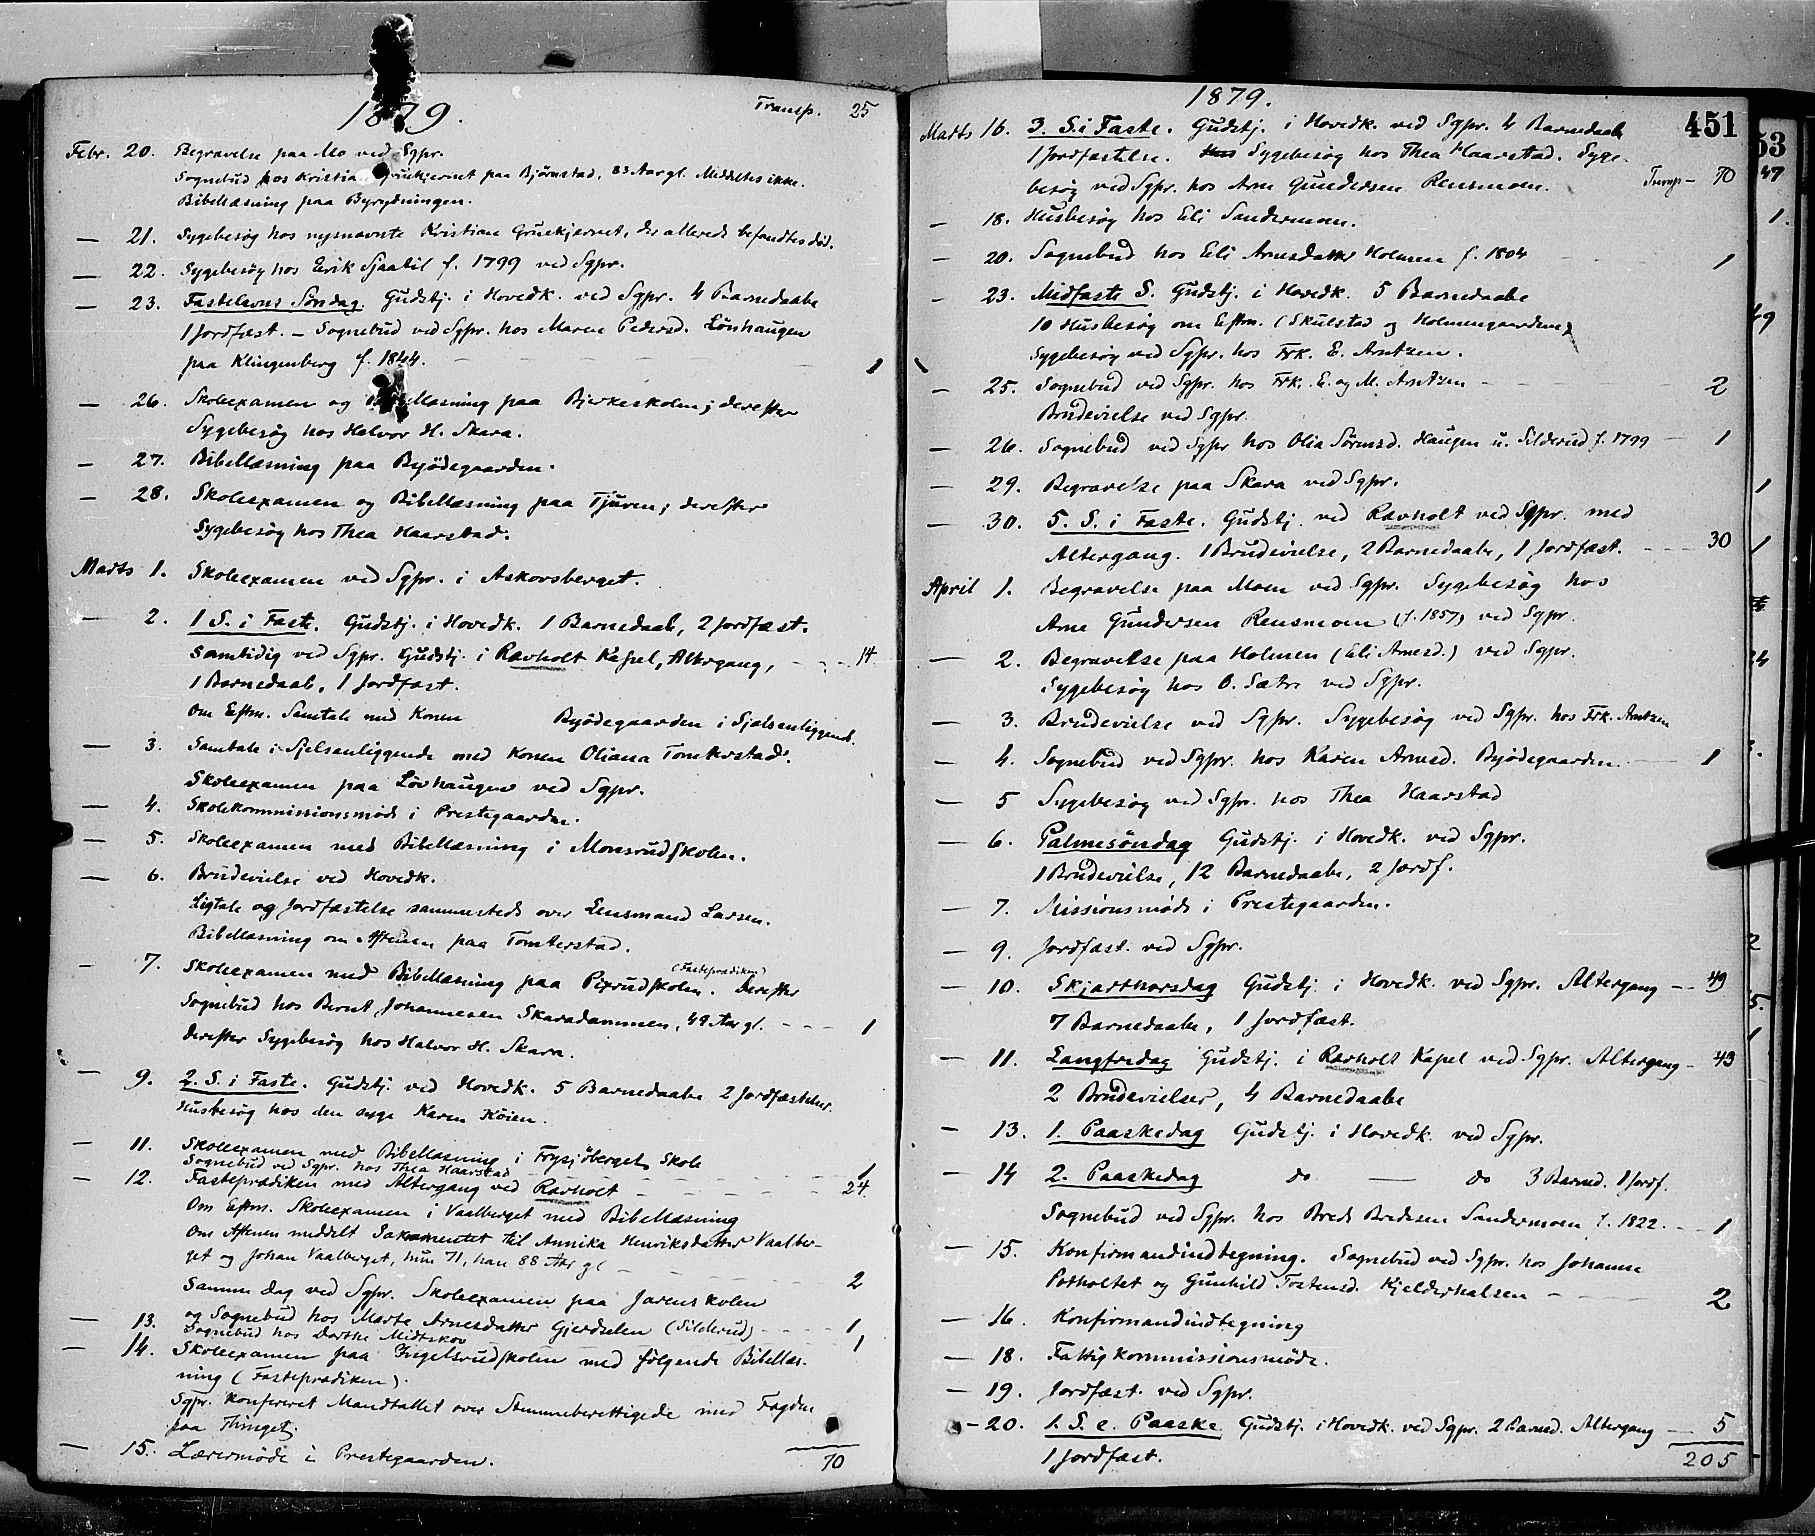 1879.
Transp. 25
Febr. 20. Begravelse paa Mo ved Sgpr.
Sognebud hos Kristian Gruekjernet paa Björnstad, 83 Aar gl. Meddeltes ikke.
Bibellæsning paa Byrydningen.
— 21. Sygebesög hos nysnævnte Kristian Gruekjernet, der allerede befandtes död.
— 22. Sygebesög hos Erik Sjaatil f. 1799 ved Sgpr.
— 23. Fastelavns Söndag. Gudstj. i Hovedk. ved Sgpr. 4 Barnedaabe
1 Jordfæst. – Sognebud ved Sgpr. hos Maren Pedersd. Lönhaugen
paa Klingenberg f. 1844. — — — 1
— 26. Skoleexamen og Bibellæsning paa Bjerkeskolen; derefter
Sygebesög hos Halvor H. Skara.
— 27. Bibellæsning paa Byödegaarden.
— 28. Skoleexamen og Bibellæsning paa Tjuren; derefter
Sygebesög hos Thea Haarstad.
Marts 1. Skoleexamen ved Sgpr. i Askorsberget.
— 2. 1 S. i Faste. Gudstj. i Hovedk. 1 Barnedaab, 2 Jordfæst.
Samtidig ved Sgpr. Gudstj. i Ravholt Kapel, Altergang, — — 14
1 Barnedaab, 1 Jordfæst.
Om Eftm. Samtale med Konen Byödegaarden i Sjælsanliggende.
— 3. Samtale i Sjelsanliggende med Konen Oliana Tomterstad.
Skoleexamen paa Lövhaugen ved Sgpr.
— 4. Skolekommissionsmöde i Prestegaarden.
— 5. Skoleexamen med Bibellæsning i Monsrudskolen.
— 6. Brudevielse ved Hovedk.
Ligtale og Jordfæstelse sammesteds over Lensmand Larsen.
Bibellæsning om Aftenen paa Tomterstad.
(Fasteprædiken)
— 7. Skoleexamen med Bibellæsning paa Pixrudskolen. Derefter
Sognebud hos Bernt Johannesen Skaradammen, 49 Aar gl. — — — 1
derefter Sygebesög hos Halvor H. Skara.
— 9. 2. S. i Faste. Gudstj. ved Hovedk. 5 Barnedaabe 2 Jordfæstelser.
Husbesög hos den syge Karen Köien.
— 11. Skoleexamen med Bibellæsning i Frysjöberget Skole
Sognebud ved Sgpr. hos Thea Haarstad — — — 1
— 12. Fasteprædiken med Altergang ved Ravholt — — — 24
Om Eftm. Skoleexamen i Vaalberget med Bibellæsning
Om Aftenen meddelt Sakramentet til Annika Henriksdatter Vaalber-
get og Johan Vaalberget, hun 71, han 88 Aar gl — — — 2
Samme Dag ved Sgpr. Skoleexamen paa Jarenskolen
og Sognebud hos Marte Arnesdatter Gjerdselen (Silderud) — — — 1
— 13. Sognebud hos Dorthe Midtskov 1
— 14. Skoleexamen paa Ingelsrudskolen med fölgende Bibellæs-
ning (Fasteprædiken).
Sgpr. konfereret Mandtallet over Stemmeberettigede med Fogden
paa Thinget.
— 15. Lærermöde i Prestegaarden.
70
1879.
451
Marts 16. 3. S. i Faste. Gudstj. i Hovedk. ved Sgpr. 4 Barnedaab
1 Jordfæstelse. Sygebesög hos Thea Haarstad. Syge-
besög ved Sgpr. hos Arne Gundersen Rensmoen. Transp — 70
— 18. Husbesög hos Eli Sandermoen.
— 20. Sognebud hos Eli Arnesdatter Holmen f. 1804 — — 1
— 23. Midfaste S. Gudstj. i Hovedk. 5 Barnedaabe
10 Husbesög om Eftm. (Skulstad og Holmengaardene)
Sygebesög ved Sgpr. hos Frk. E. Arntzen.
— 25. Sognebud ved Sgpr. hos Frk. E. og M. Arntzen — — 2
Brudevielse ved Sgpr.
— 26. Sognebud ved Sgpr hos Olia Sörensd. Haugen u. Silderud f. 1799 — 1
— 29. Begravelse paa Skara ved Sgpr.
— 30. 5. S. i Faste. Gudstj. ved Ravholt ved Sgpr. med
Altergang. 1 Brudevielse, 2 Barnedaabe, 1 Jordfæst. — — 30
April 1. Begravelse paa Moen ved Sgpr. Sygebesög hos
Arne Gundersen Rensmoen (f. 1857) ved Sgpr.
— 2. Begravelse paa Holmen (Eli Arnesd.) ved Sgpr.
Sygebesög hos O. Sætre ved Sgpr.
— 3. Brudevielse ved Sgpr. Sygebesög ved Sgpr. hos Frk. Arntzen
— 4. Sognebud ved Sgpr. hos Karen Arnesd. Byödegaarden — — 1
— 5 Sygebesög ved Sgpr. hos Thea Haarstad
— 6. Palmesöndag Gudstj. i Hovedk. ved Sgpr.
1 Brudevielse, 12 Barnedaabe, 2 Jordf.
— 7. Missionsmöde i Prestegaarden.
— 9. Jordfæst. ved Sgpr.
— 10. Skjærthorsdag Gudstj. i Hovedk. ved Sgpr. Altergang — — 49
7 Barnedaabe, 1 Jordfæst.
— 11. Langfredag Gudstj. i Ravholt Kapel ved Sgpr. Altergang — 43
2 Brudevielser, 4 Barnedaabe
— 13. 1. Paaskedag Gudstj. i Hovedk. ved Sgpr.
— 14 2. Paaskedag do — do 3 Barned. 1 Jordf.
Sognebud ved Sgpr. hos Brede Bredesen Sandermoen f. 1822. — — 1
— 15. Konfirmandindtegning. Sognebud ved Sgpr. hos Johanne
Potholtet og Gunhild Tostensd. Kjelderhalsen — — — 2
— 16. Konfirmandindtegning
— 18. Fattigkommissionsmöde.
— 19. Jordfæst. ved Sgpr.
— 20. 1. S. e. Paaske Gudstj. i Hovedk. ved Sgpr. 2 Barned. Altergang — 5
1 Jordfæst. 205